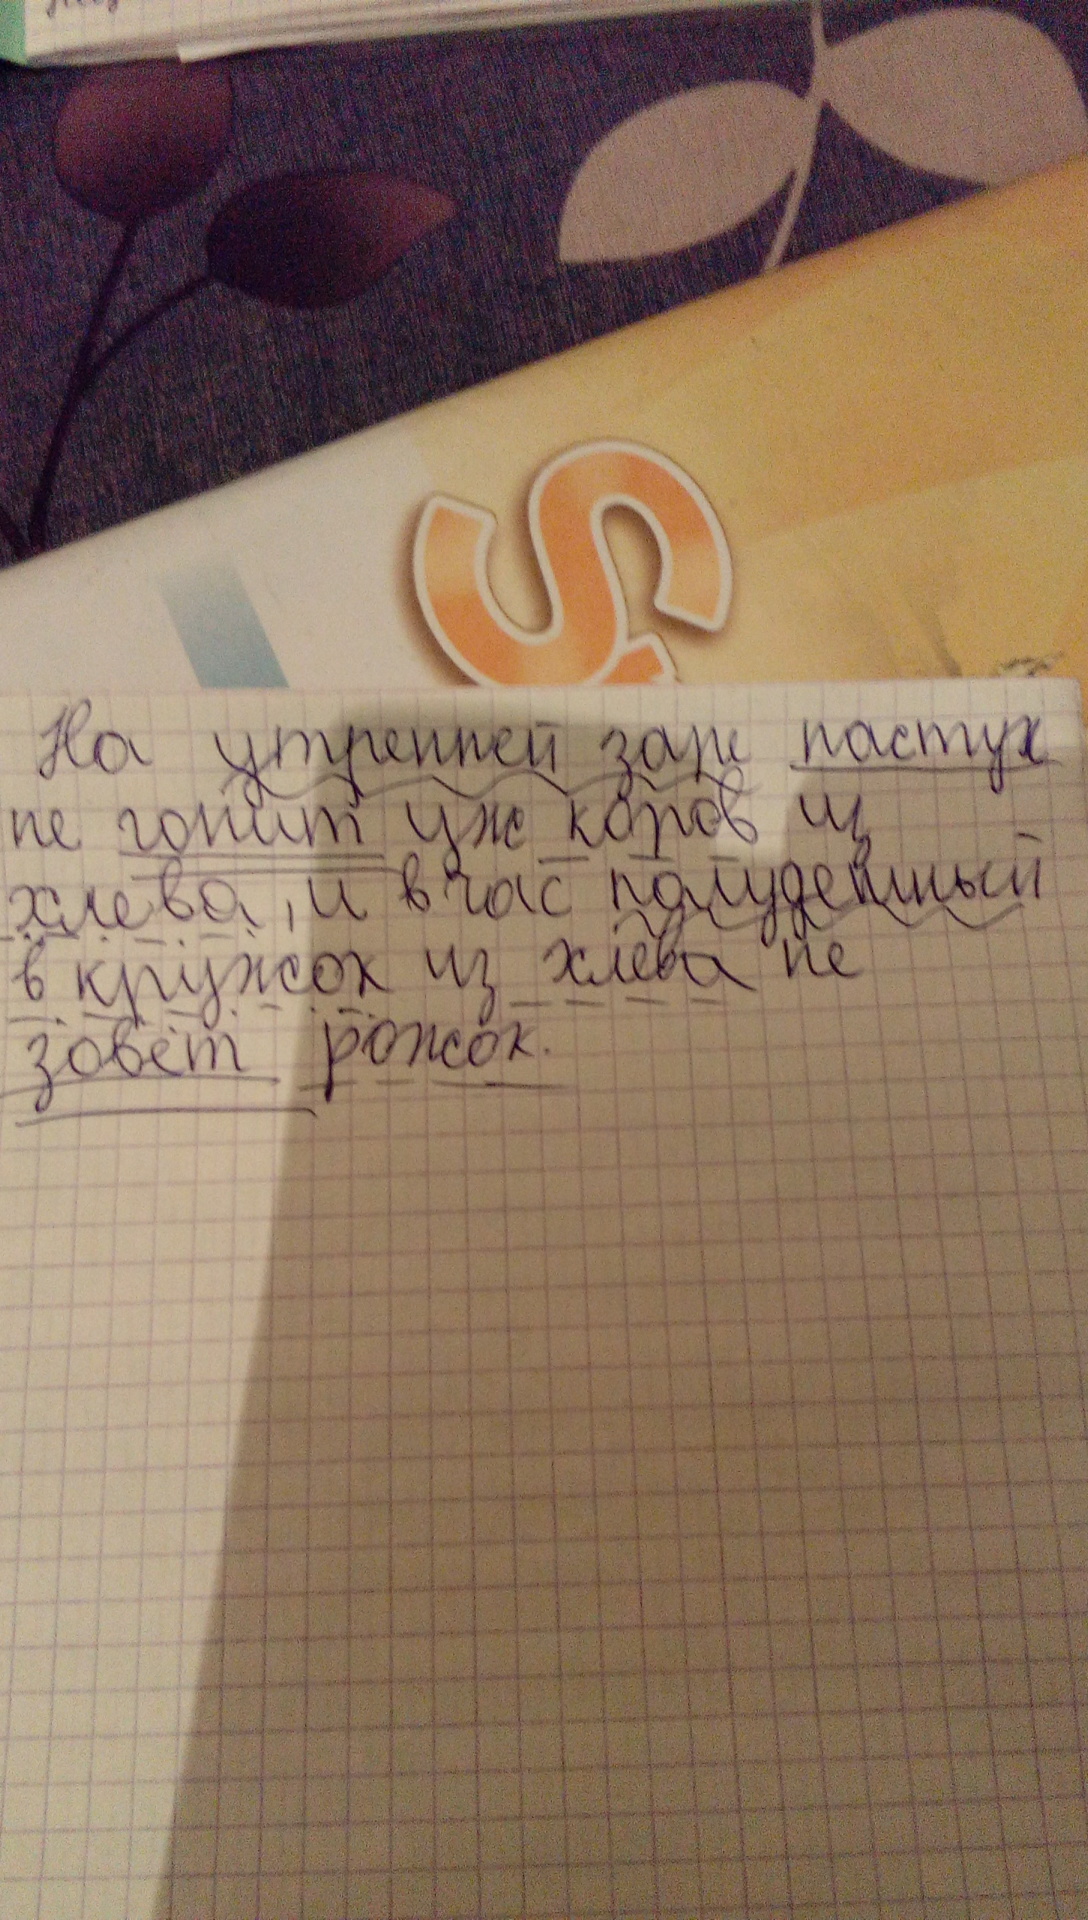 На утренней заре пастух
не гонит уж коров из
хлева, и в час полуденный
в кружок из хлева не
зовет рожок.
S